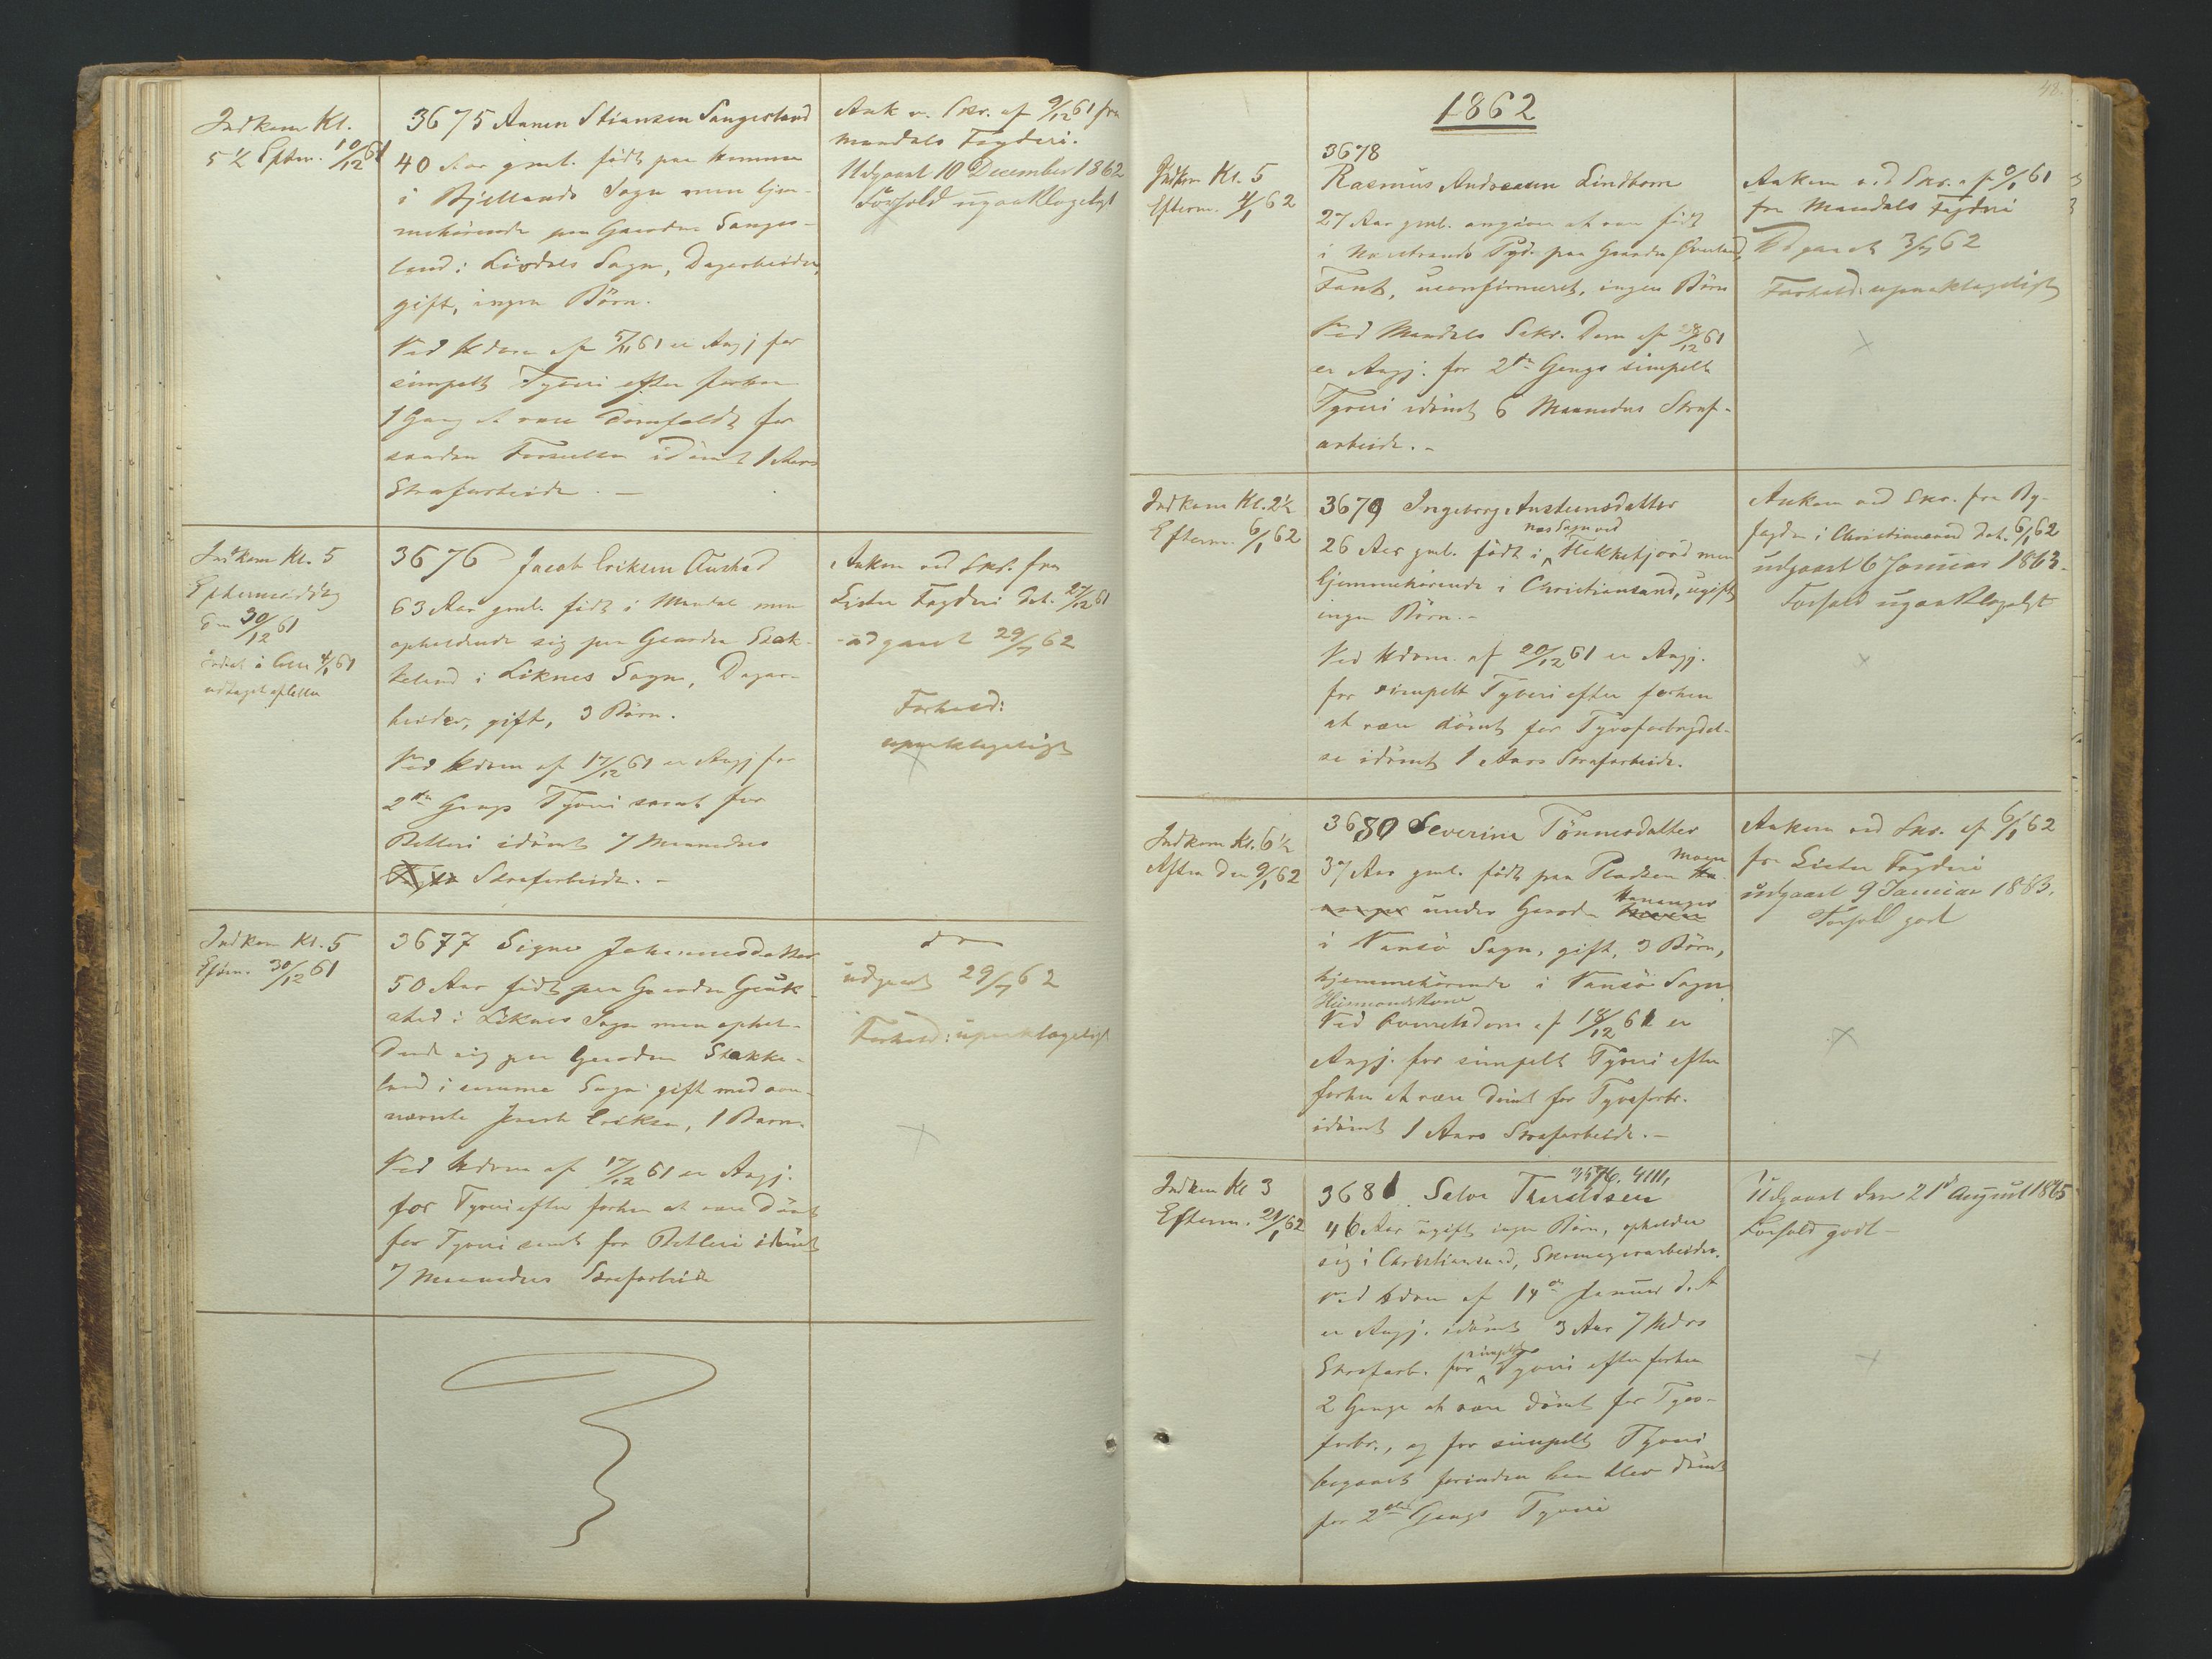 Indkom Kl.
5 1/2 Efterm. 10/12 61
3675 Aanen Stiansen Sangesland
40 Aar gml. født paa Homme
i Bjellands Sogn men hjem-
mehörende paa Gaarden Sanges-
land i Lövdals Sogn, Dagarbeider,
gift, ingen Börn.
Ved Udom af 5/11 61 er Angj for
simpelt Tyveri efter forhen
1 Gang at være domfældt for
saadan Forseelse idömt 1 Aars
Strafarbeide. —
Ank v. Skr. af 9/12 61 fra
Mandals Fogderi.
Udgaaet 10 December 1862
Forhold upaaklageligt
Indkom Kl. 5
Eftermiddag
den 30/12 61
indsat i Celle 4/1 61
udtaget af Cellen
3676 Jacob Eriksen Austad
63 Aar gml. født i Mandal men
opholdende sig paa Gaarden Stak-
keland i Liknes Sogn, Dagar-
beider, gift, 3 Börn.
Ved Udom af 17/12 61 er Angj for
2den Gangs Tyveri samt for
Betleri idömt 7 Maaneders
Strafarbeide. —
Ankom ved Skr. fra
Lister Fogderi dat. 27/12 61
udgaaet 29/7 62
Forhold:
upaaklageligt
Indkom Kl. 5
Efterm. 30/12 61
3677 Signe Johannesdatter
50 Aar født paa Gaarden
sted i Liknes Sogn men ophol-
dende sig paa Gaarden Stakke-
land i samme Sogn gift med oven-
nævnte Jacob Eriksen, 1 Barn.
Ved Udom af 17/12 61 er Angj.
for Tyveri efter forhen at være dömt
for Tyveri samt for Betleri idömt
7 Maaneders Strafarbeide
do
udgaaet 29/7 62
Forhold: upaaklageligt
48.
1862
Indkom Kl. 5
Efterm. 4/1 62
3678
Rasmus Andreasen Lindbom
27 Aar gml. angiver at være født
i Nærstrands Pgd. paa Gaarden Överland,
Fant, uconfirmeret, ingen Börn
Ved Mandals Sokr. Dom af 28/12 61
er Angj. for 2den Gangs simpelt
Tyveri idömt 6 Maaneders Straf-
arbeide. —
Ankom ved Skr. af 61
fra Mandals Fogderi
Udgaaet 3/7 62
Forhold: upaaklageligt
Indkom Kl. 2 1/2
Efterm. 6/1 62
3679 Ingeborg Austeinsdatter
næs Sogn ved
26 Aar gml. født i Flekkefjord men
hjemmehörende i Christiansand, ugift
ingen Börn. —
Ved Udom. af 20/12 61 er Angj.
for simpelt Tyveri efter forhen
at være dömt for Tyvsforbrydel-
se idömt 1 Aars Strafarbeide.
Ankom ved Skr. fra By-
fogden i Christiansand dat. 6/1 62
udgaaet 6 Januar 1863.
Forhold upaaklageligt
Indkom Kl. 6 1/2
Aften den 9/1 62
3680 Severine Tönnesdatter
Moen
37 Aar gml. født paa Pladsen
Hananger
under Gaarden
i Vansö Sogn, gift, 3 Börn,
hjemmehörende i Vansö Sogn.
Huusmandskone
Ved Overretsdom af 18/12 61 er
Angj. for simpelt Tyveri efter
forhen at være dömt for Tyvsforbr.
idömt 1 Aars Strafarbeide. —
Ankom ved Skr. af 6/1 62
fra Lister Fogderi
udgaaet 9 Januar 1863.
Forhold godt
Indkom Kl 3
Efterm. 21/1 62
3576. 4111,
3681 Salve Thoraldsen
46 Aar ugift ingen Börn, opholder
sig i Christiansand, Skomagerarbeider.
Ved Udom af 14de Januar d. A
er Angj. idömt 3 Aar 7 Mdrs
simpelt
Strafarb. for Tyveri efter forhen
2 Gange at være dömt for Tyvs-
forbr., og for simpelt Tyveri
begaaet forinden han blev dömt
for 2den Gangs Tyveri
Udgaaet den 21de August 1865
Forhold godt —